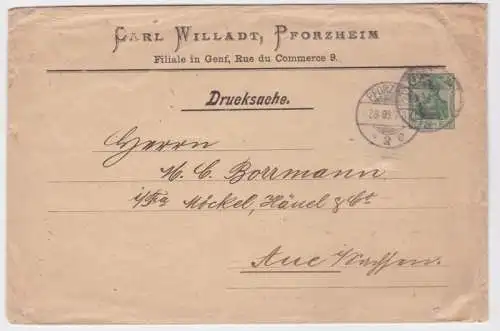 CARL WILLADT, PFORZHEIM
Filiale in Genf, Rue du Commerce 9.
Drucksache.
PFORZ
Herrn
M. C. Borrmann
i/Fa Möckel, Händel & Ct
Aue Sachsen.